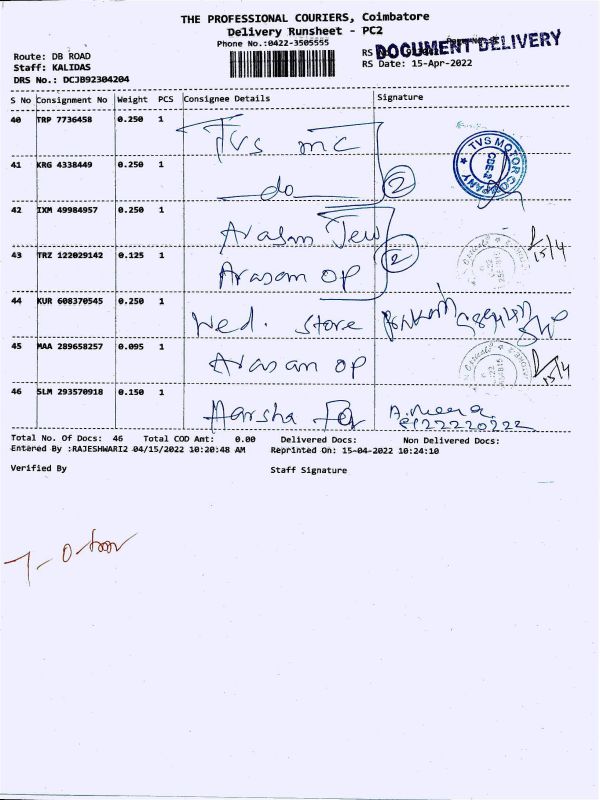 THE PROFESSIONAL COURIERS, Coimbatore
Delivery Runsheet - PC2
Phone No.:0422-3505555
DOCUMENT DELIVERY
Route: DB ROAD
RS
Staff: KALIDAS
RS Date: 15-Apr-2022
DRS No.: DCJB92304204
S No Consignment No Weight PCS Consignee Details Signature
40 TRP 7736458 0.250 1
Tvs mc
TVS MOTOR COMPANY
CBE-2
41 KRG 4338449 0.250 1
do
2
42 IXM 49984957 0.250 1
Arasan Jew
15/4
43 TRZ 122029142 0.125 1
Arasan OP
2
44 KUR 608370545 0.250 1
Wed. Store
45 MAA 289658257 0.095 1
Arasan OP
15/4
46 SLM 293570918 0.150 1
Harsha
A. Meena
Total No. Of Docs: 46 Total COD Amt: 0.00 Delivered Docs: Non Delivered Docs:
Entered By :RAJESHWARI2 04/15/2022 10:20:48 AM Reprinted On: 15-04-2022 10:24:10
Verified By Staff Signature